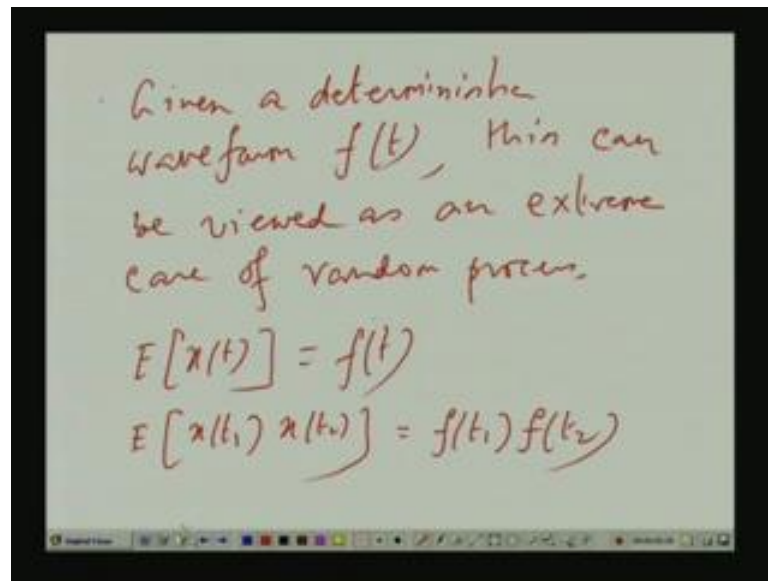 Given a determininhe
waveform f(t), this can
be viewed as an extreme
case of random process.
E[x(t)] = f(t)
E[x(t₁) x(t₂)] = f(t₁) f(t₂)